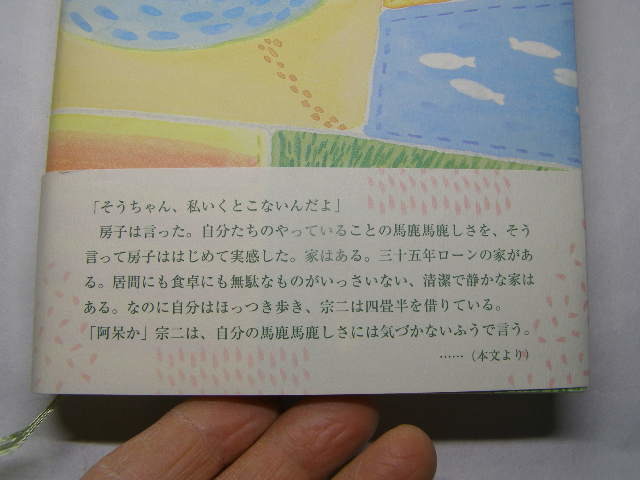 「そうちゃん、私いくとこないんだよ」
房子は言った。自分たちのやっていることの馬鹿馬鹿しさを、そう
言って房子ははじめて実感した。家はある。三十五年ローンの家があ
る。居間にも食卓にも無駄なものがいっさいない、清潔で静かな家は
ある。なのに自分はほっつき歩き、宗二は四畳半を借りている。
「阿呆か」宗二は、自分の馬鹿馬鹿しさには気づかないふうで言う。
……（本文より）